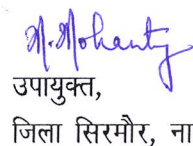 M. Mohanty
उपायुक्त,
जिला सिरमौर, ना